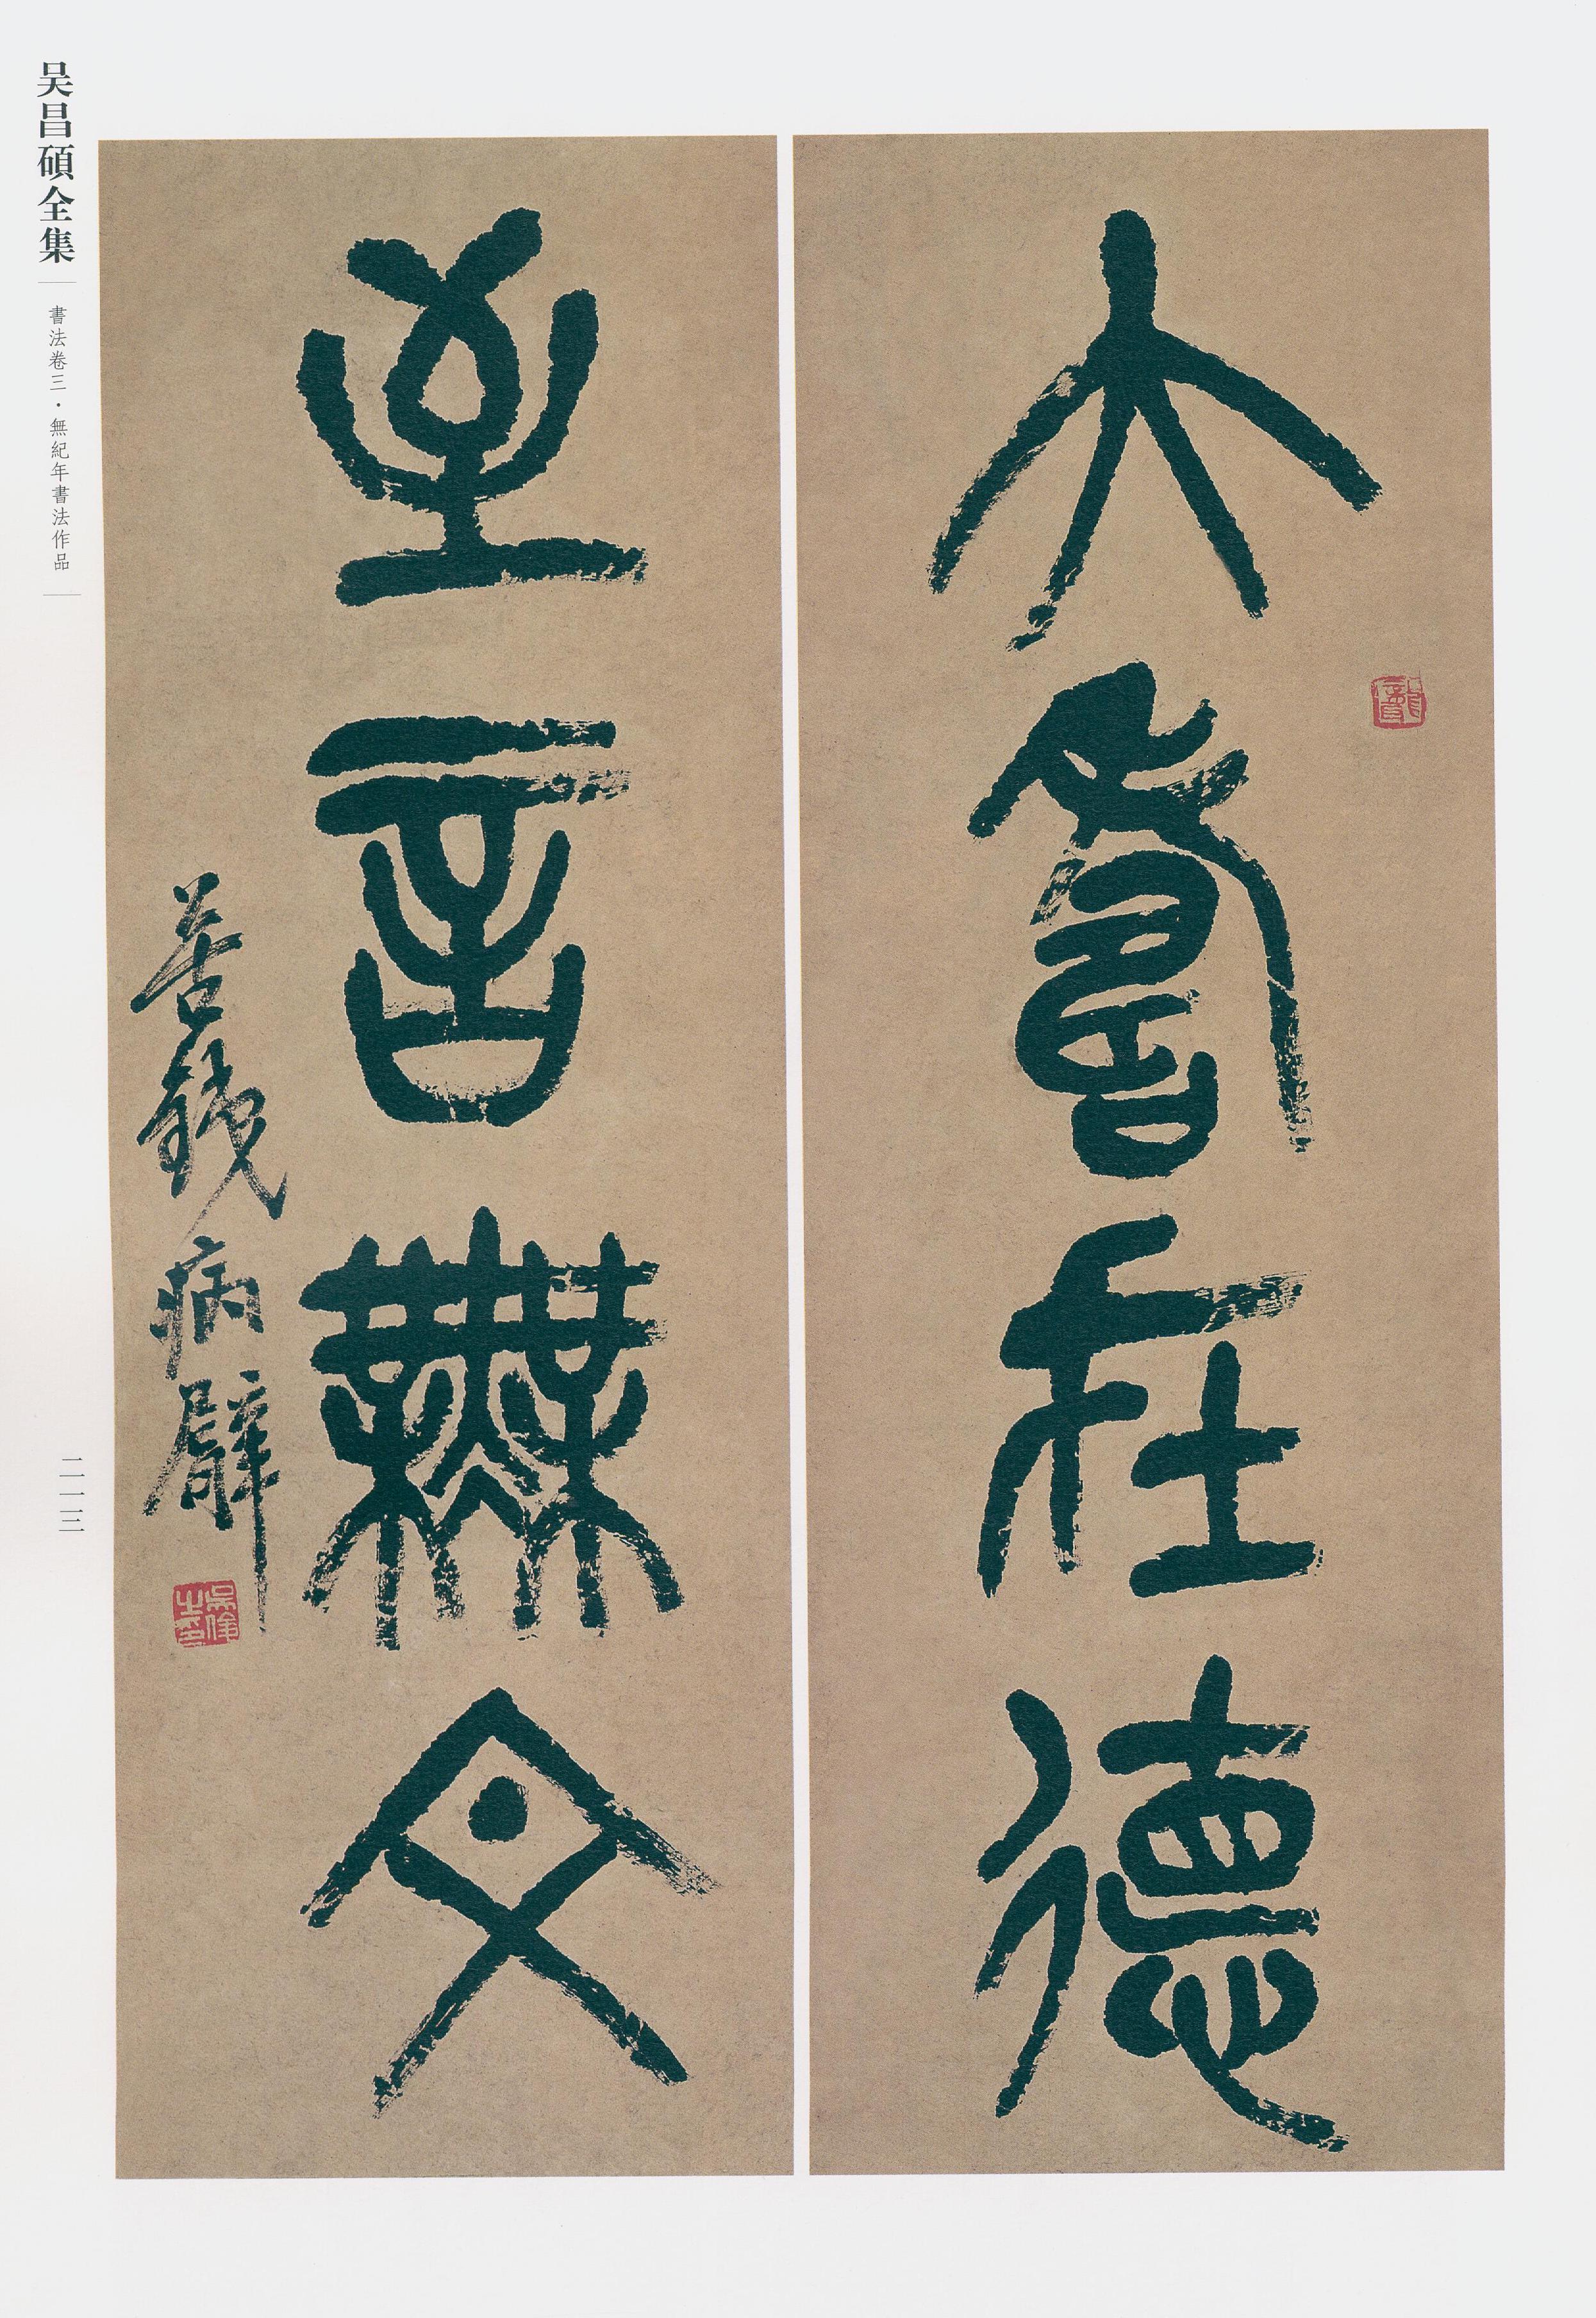 大壽在德
至言無文
苦鐵病臂
吳俊之印
吴昌碩全集
書法卷三·無紀年書法作品
二一三